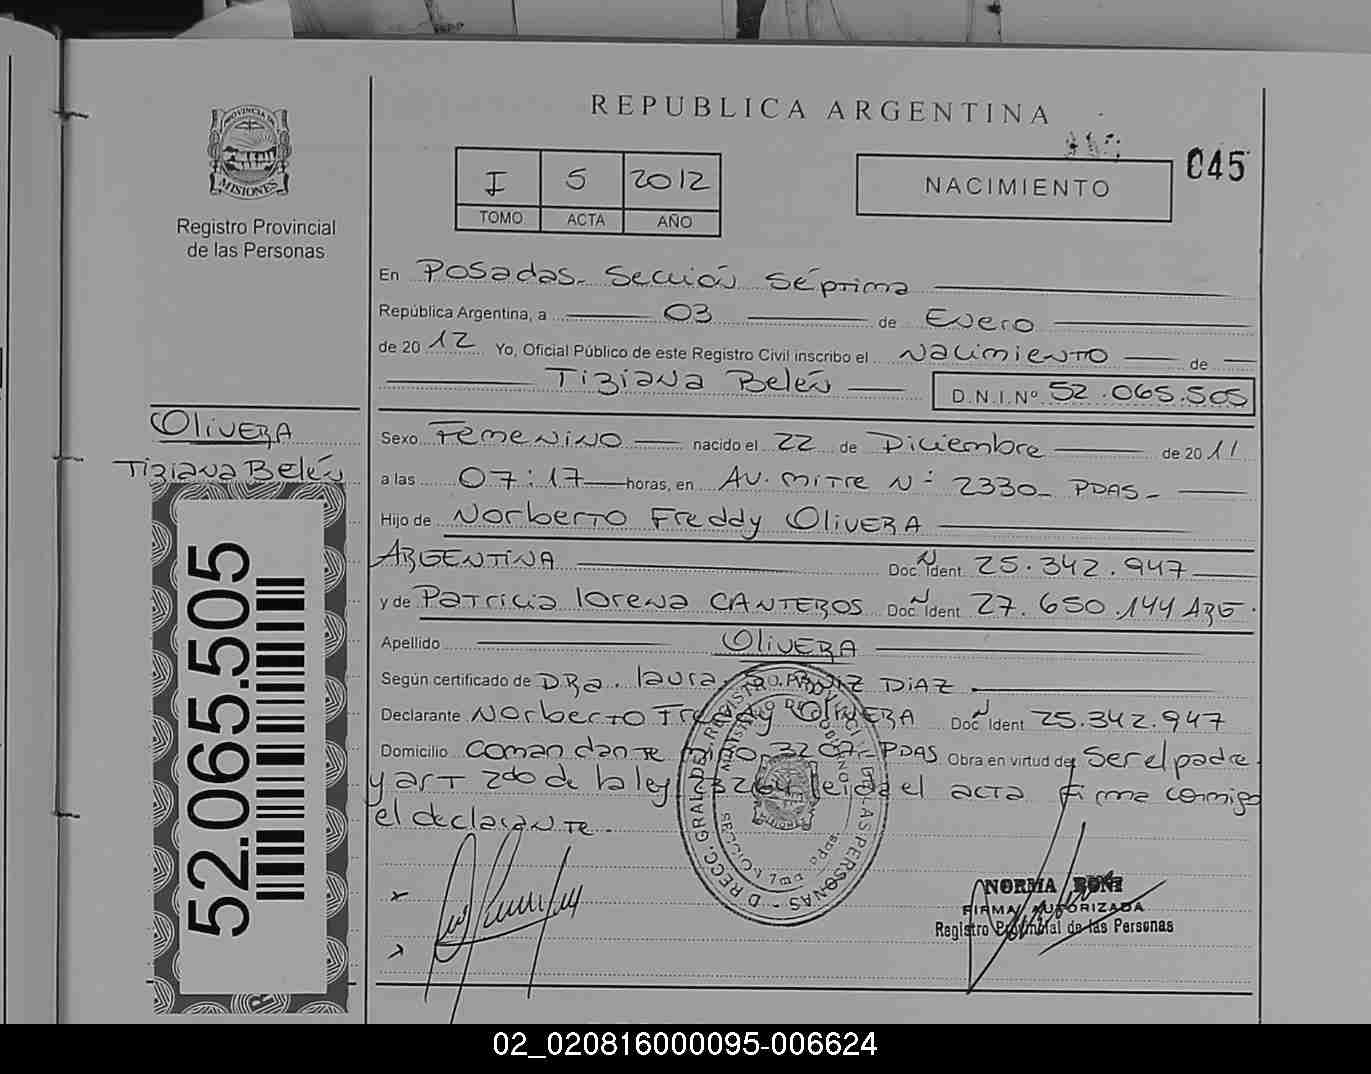 REPUBLICA ARGENTINA
PROVINCIA DE
MISIONES
Registro Provincial
de las Personas
I 5 2012
TOMO ACTA AÑO
NACIMIENTO
045
En Posadas - Sección Séptima
República Argentina, a 03 de Enero
de 20 12 Yo, Oficial Público de este Registro Civil inscribo el Nacimiento de
Tiziana Belén
D.N.I.Nº 52.065.505
OliVERA
Tiziana Belén
52.065.505
Sexo Femenino nacido el 22 de Diciembre de 20 11
a las 07:17 horas, en AV. MITRE Nº 2330 - PDAS -
Hijo de Norberto Freddy OliVERA
ARGENTINA Doc. Ident. N 25.342.947
y de Patricia lorena CANTEROS Doc. Ident. N 27.650.144 ARG.
Apellido OliVERA
Según certificado de DRa. laura RUIZ DIAZ
Declarante Norberto Freddy OliVERA Doc. Ident. N 25.342.947
Domicilio Comandante miño 3207 - PDAS Obra en virtud de Ser el padre
y art 2do de la ley 23264 leida el acta firma conmigo
el declarante.
NORMA
FIRMA AUTORIZADA
Registro Provincial de las Personas
02_020816000095-006624